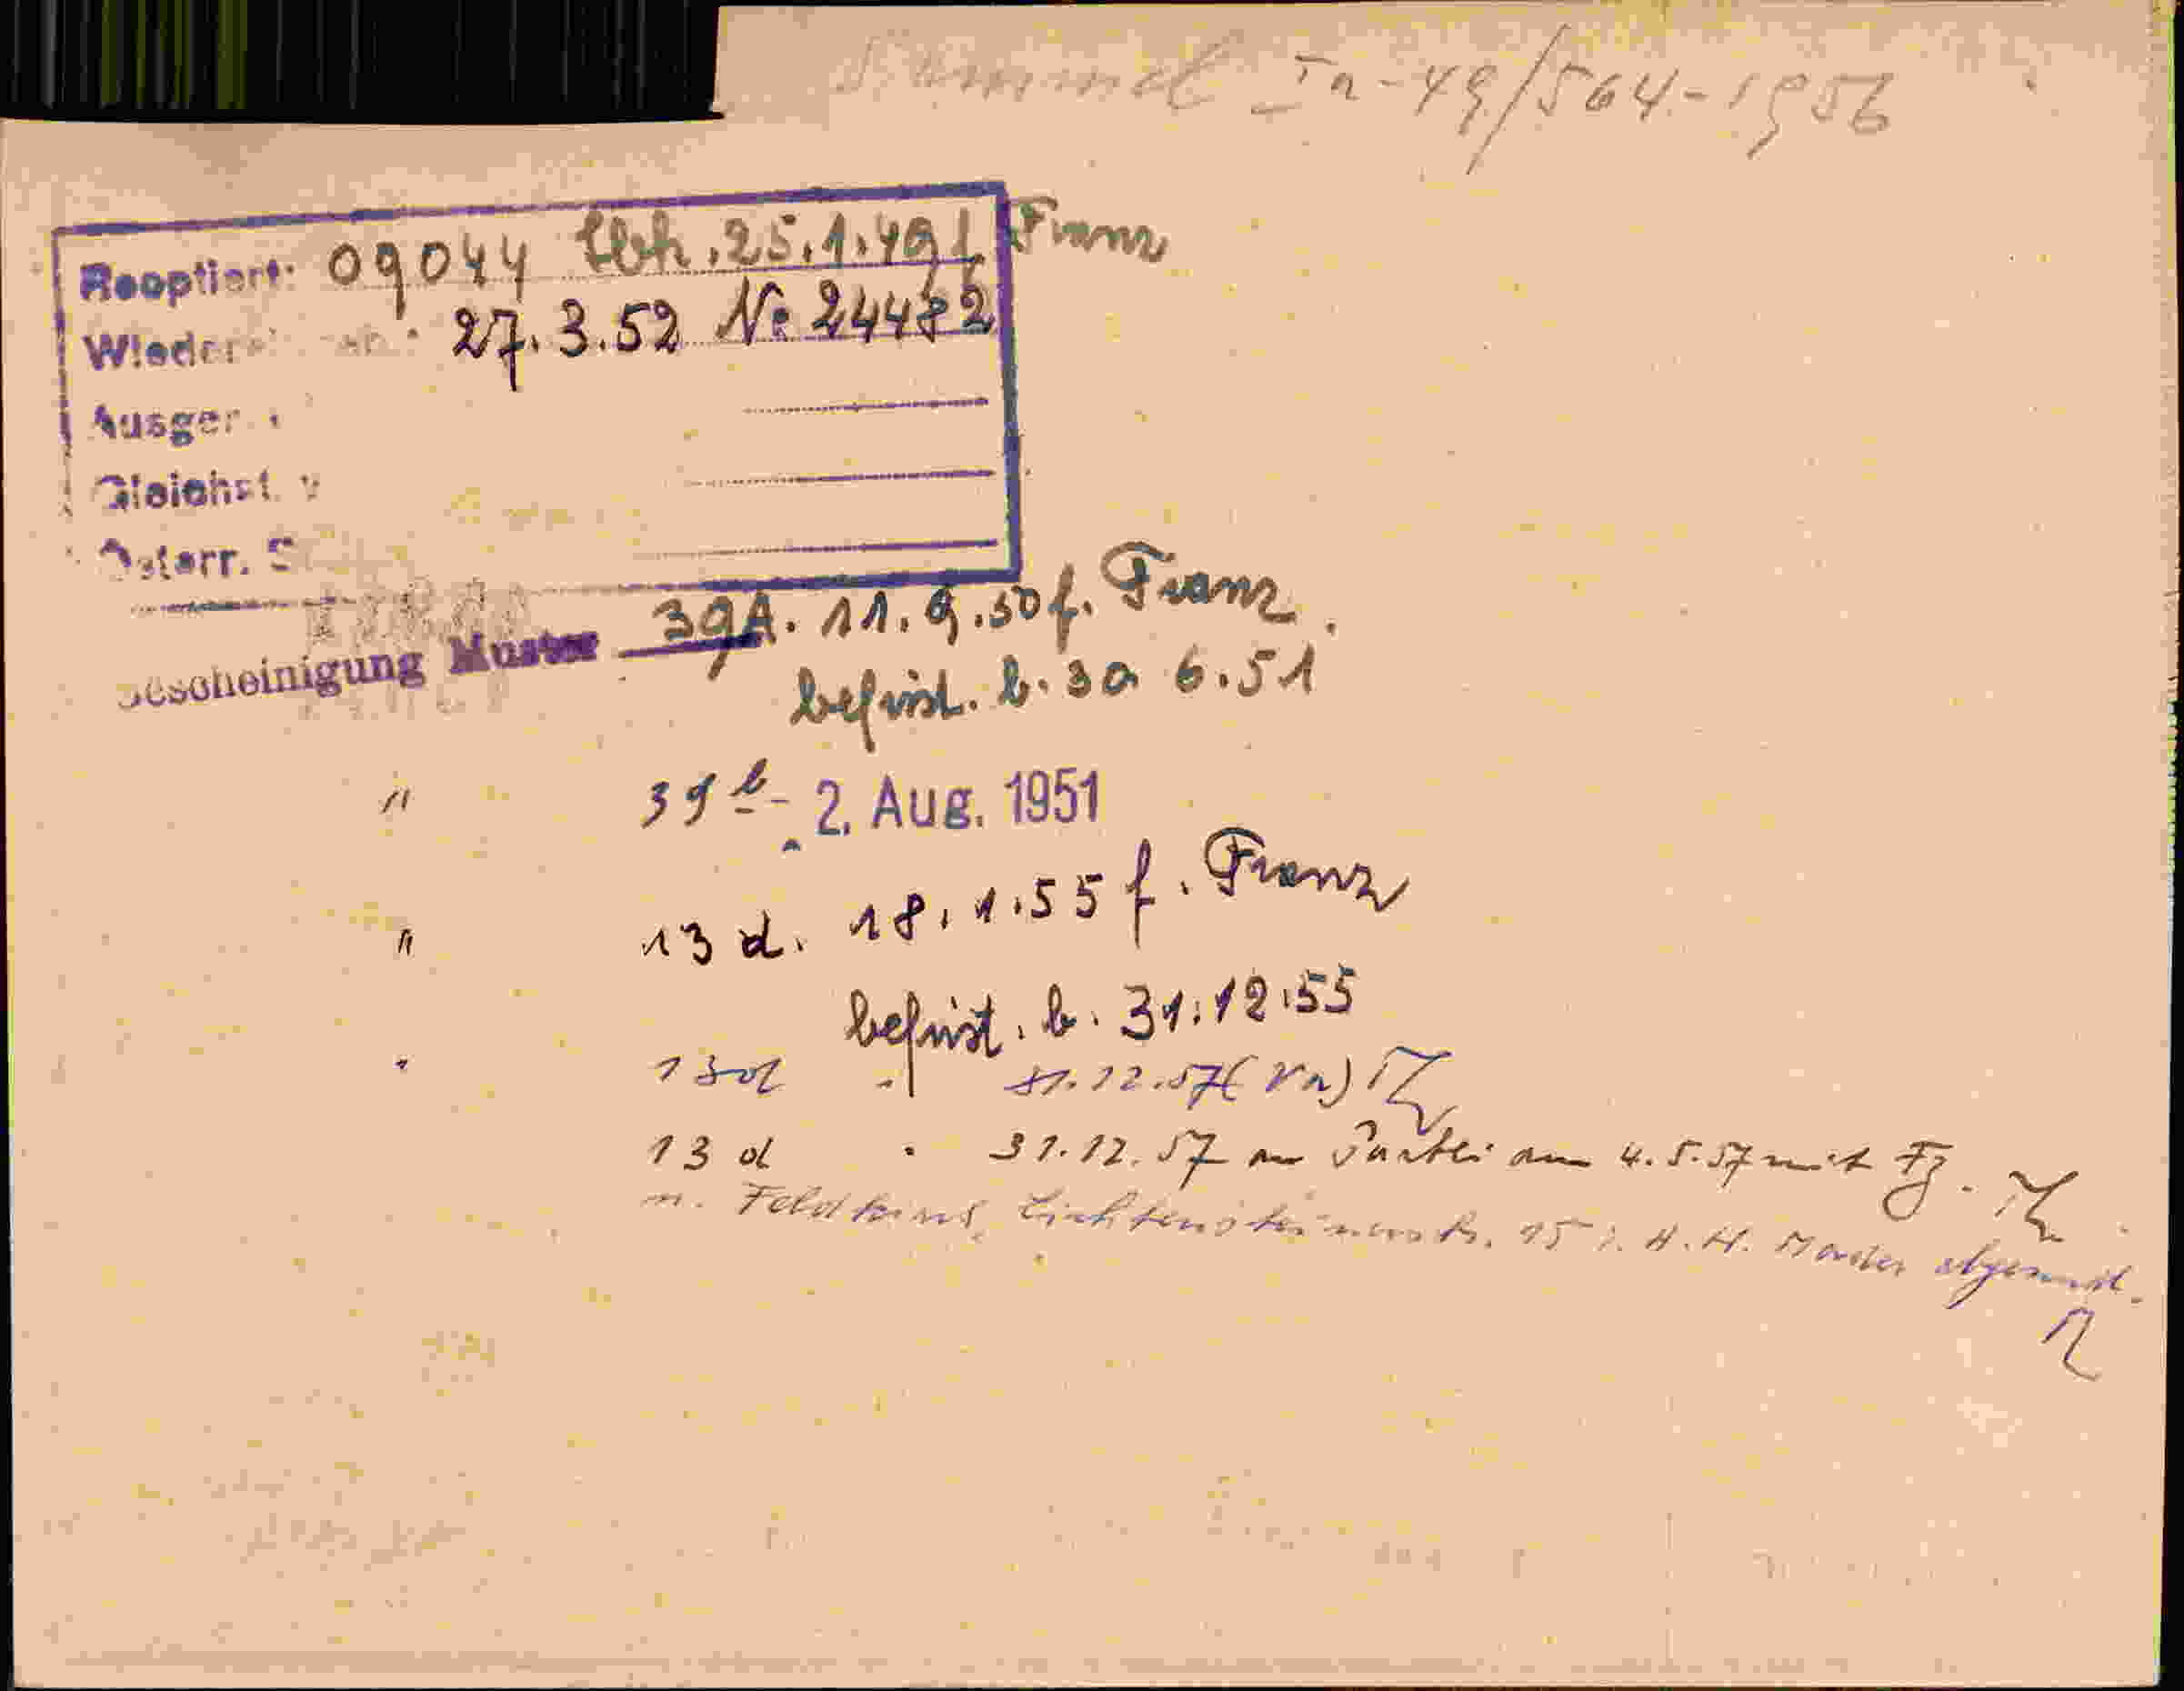 Sammel Ia-49/564-1956
Reoptiert: 09044 Ibk. 25.1.49 f Franz
Wieder 27.3.52 No 24482
Ausger.
Gleichst. v
Österr. S
Bescheinigung Muster 39A. 11.9.50 f. Franz.
befrist. b. 30 6.51
" 39 b - 2. Aug. 1951
" 13 d. 18.1.55 f. Franz
befrist. b. 31.12.55
" 13d " 31.12.57 (
13 d " 31.12.57 an Partei am 4.5.57 mit
n. Feldkirch, Liechtensteinerstr. 15